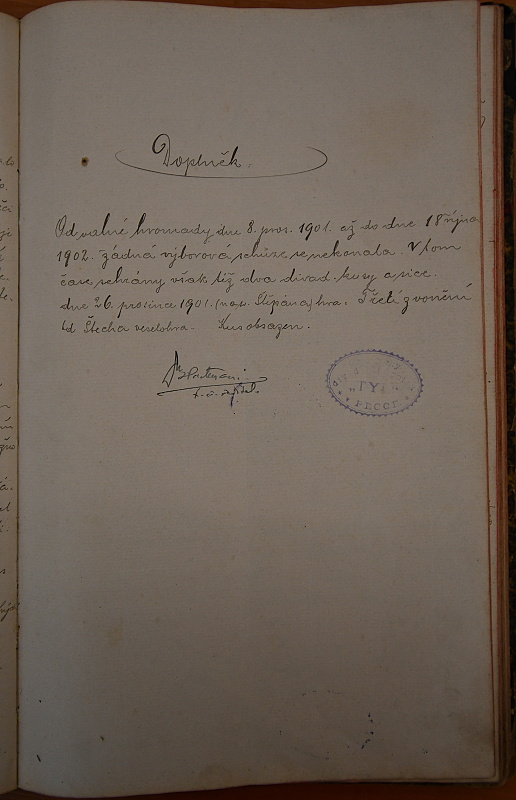 Doplněk.
Od valné hromady dne 8. pros. 1901. až do dne 18 října
1902. žádná výborová schůze se nekonala. V tom
čase sehrány však též dva divad. kusy a sice.
dne 26. prosince 1901. (na sv. Štěpána) hra. Třetí zvonění
od Štecha veselohra. Kus obsazen.
"TYL"